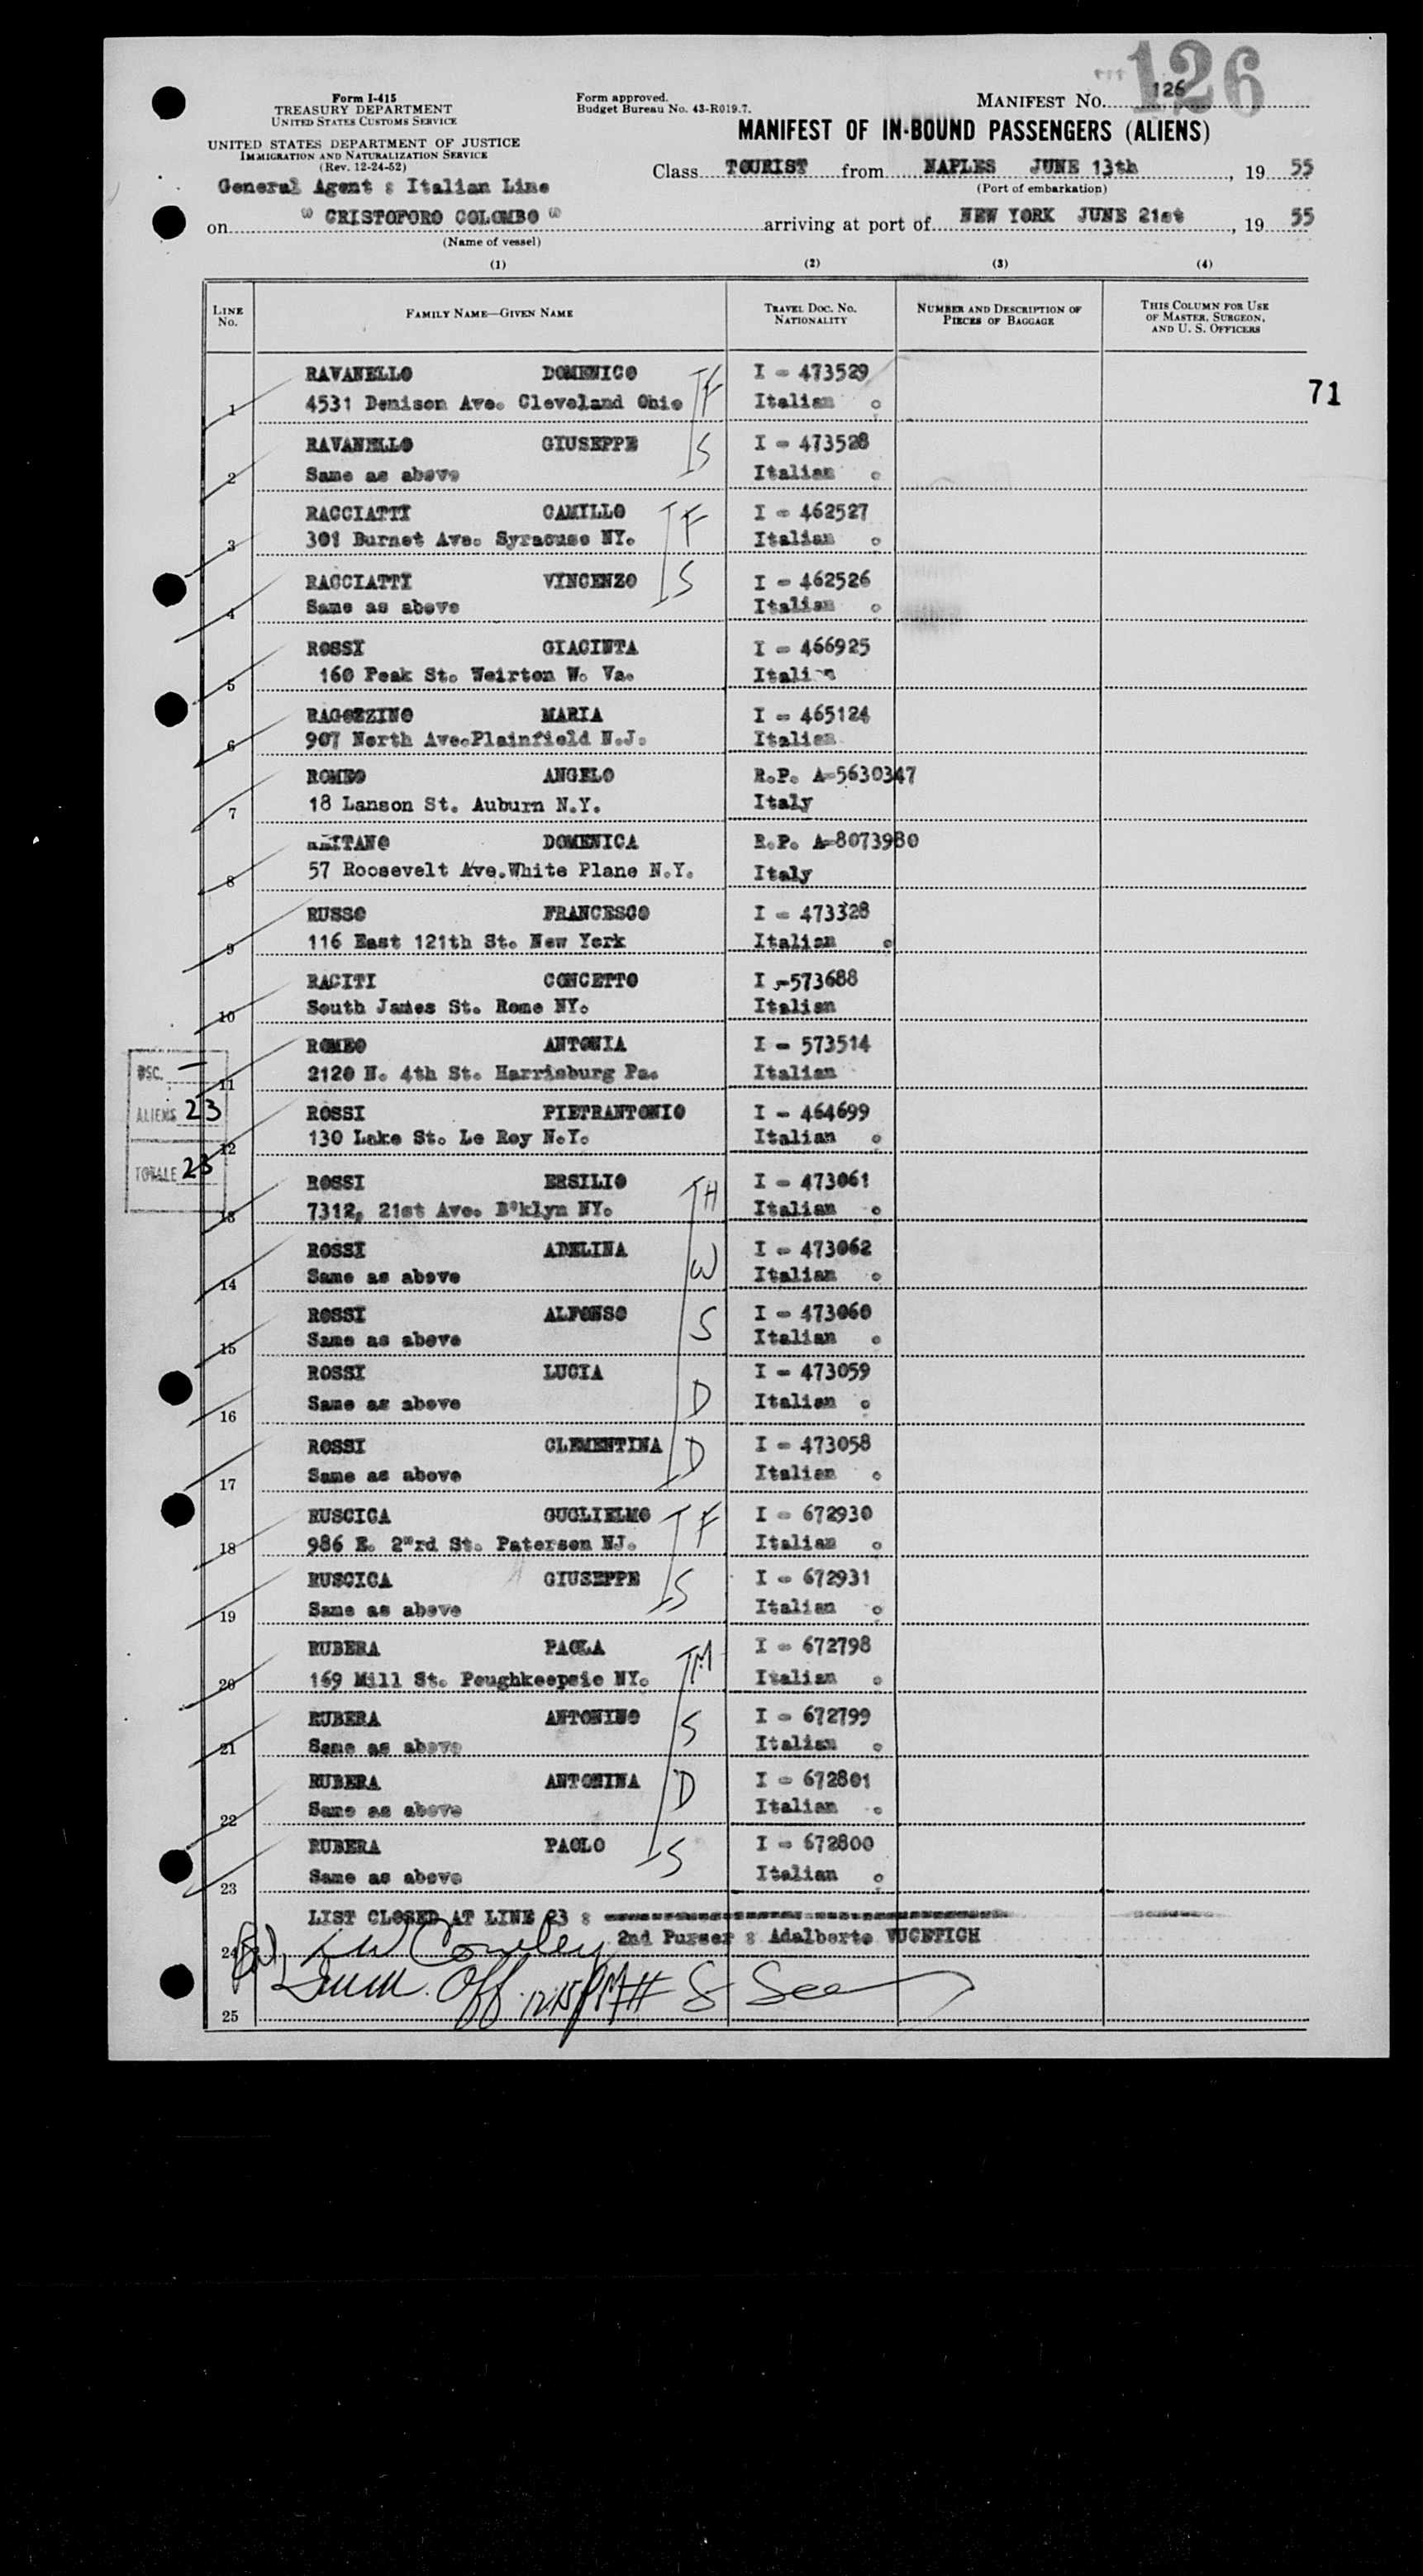 126
Form I-415
TREASURY DEPARTMENT
UNITED STATES CUSTOMS SERVICE
Form approved.
Budget Bureau No. 43-R019.7.
MANIFEST NO. 126
MANIFEST OF IN-BOUND PASSENGERS (ALIENS)
UNITED STATES DEPARTMENT OF JUSTICE
IMMIGRATION AND NATURALIZATION SERVICE
(Rev. 12-24-52)
Class TOURIST from NAPLES JUNE 13th, 19 55
(Port of embarkation)
General Agent : Italian Line
on " CRISTOFORO COLOMBO " arriving at port of NEW YORK JUNE 21st, 19 55
(Name of vessel)
(1) (2) (3) (4)
LINE No. FAMILY NAME—GIVEN NAME TRAVEL DOC. NO. NATIONALITY NUMBER AND DESCRIPTION OF PIECES OF BAGGAGE THIS COLUMN FOR USE OF MASTER, SURGEON, AND U. S. OFFICERS
71
RAVANELLO DOMENICO F I - 473529
1 4531 Denison Ave. Cleveland Ohio Italian
RAVANELLO GIUSEPPE S I - 473528
2 Same as above Italian
RACCIATTI CAMILLO F I - 462527
3 301 Burnet Ave. Syracuse NY. Italian
RACCIATTI VINCENZO S I - 462526
4 Same as above Italian
ROSSI GIACINTA I - 466925
5 160 Peak St. Weirton W. Va. Italian
RAGOZZINO MARIA I - 465124
6 907 North Ave.Plainfield N.J. Italian
ROMEO ANGELO R.P. A-5630347
7 18 Lanson St. Auburn N.Y. Italy
DOMENICA R.P. A-8073980
8 57 Roosevelt Ave.White Plane N.Y. Italy
RUSSO FRANCESCO I - 473328
9 116 East 121th St. New York Italian
RACITI CONCETTO I -573688
10 South James St. Rome NY. Italian
ROMEO ANTONIA I - 573514
11 2120 N. 4th St. Harrisburg Pa. Italian
ROSSI PIETRANTONIO I - 464699
12 130 Lake St. Le Roy N.Y. Italian
ALIENS 23
TOTALE 23
ROSSI ERSILIO H I - 473061
13 7312, 21st Ave. B'klyn NY. Italian
ROSSI ADELINA W I - 473062
14 Same as above Italian
ROSSI ALFONSO S I - 473060
15 Same as above Italian
ROSSI LUCIA D I - 473059
16 Same as above Italian
ROSSI CLEMENTINA D I - 473058
17 Same as above Italian
RUSCICA GUGLIELMO F I - 672930
18 986 E. 2"rd St. Paterson NJ. Italian
RUSCICA GIUSEPPE S I - 672931
19 Same as above Italian
RUBERA PAOLA M I - 672798
20 169 Mill St. Poughkeepsie NY. Italian
RUBERA ANTONINO S I - 672799
21 Same as above Italian
RUBERA ANTONINA D I - 672801
22 Same as above Italian
RUBERA PAOLO S I - 672800
23 Same as above Italian
LIST CLOSED AT LINE 23 :
24 2nd Purser : Adalberto VUCETICH
25 Imm. Off. 12:15 PM